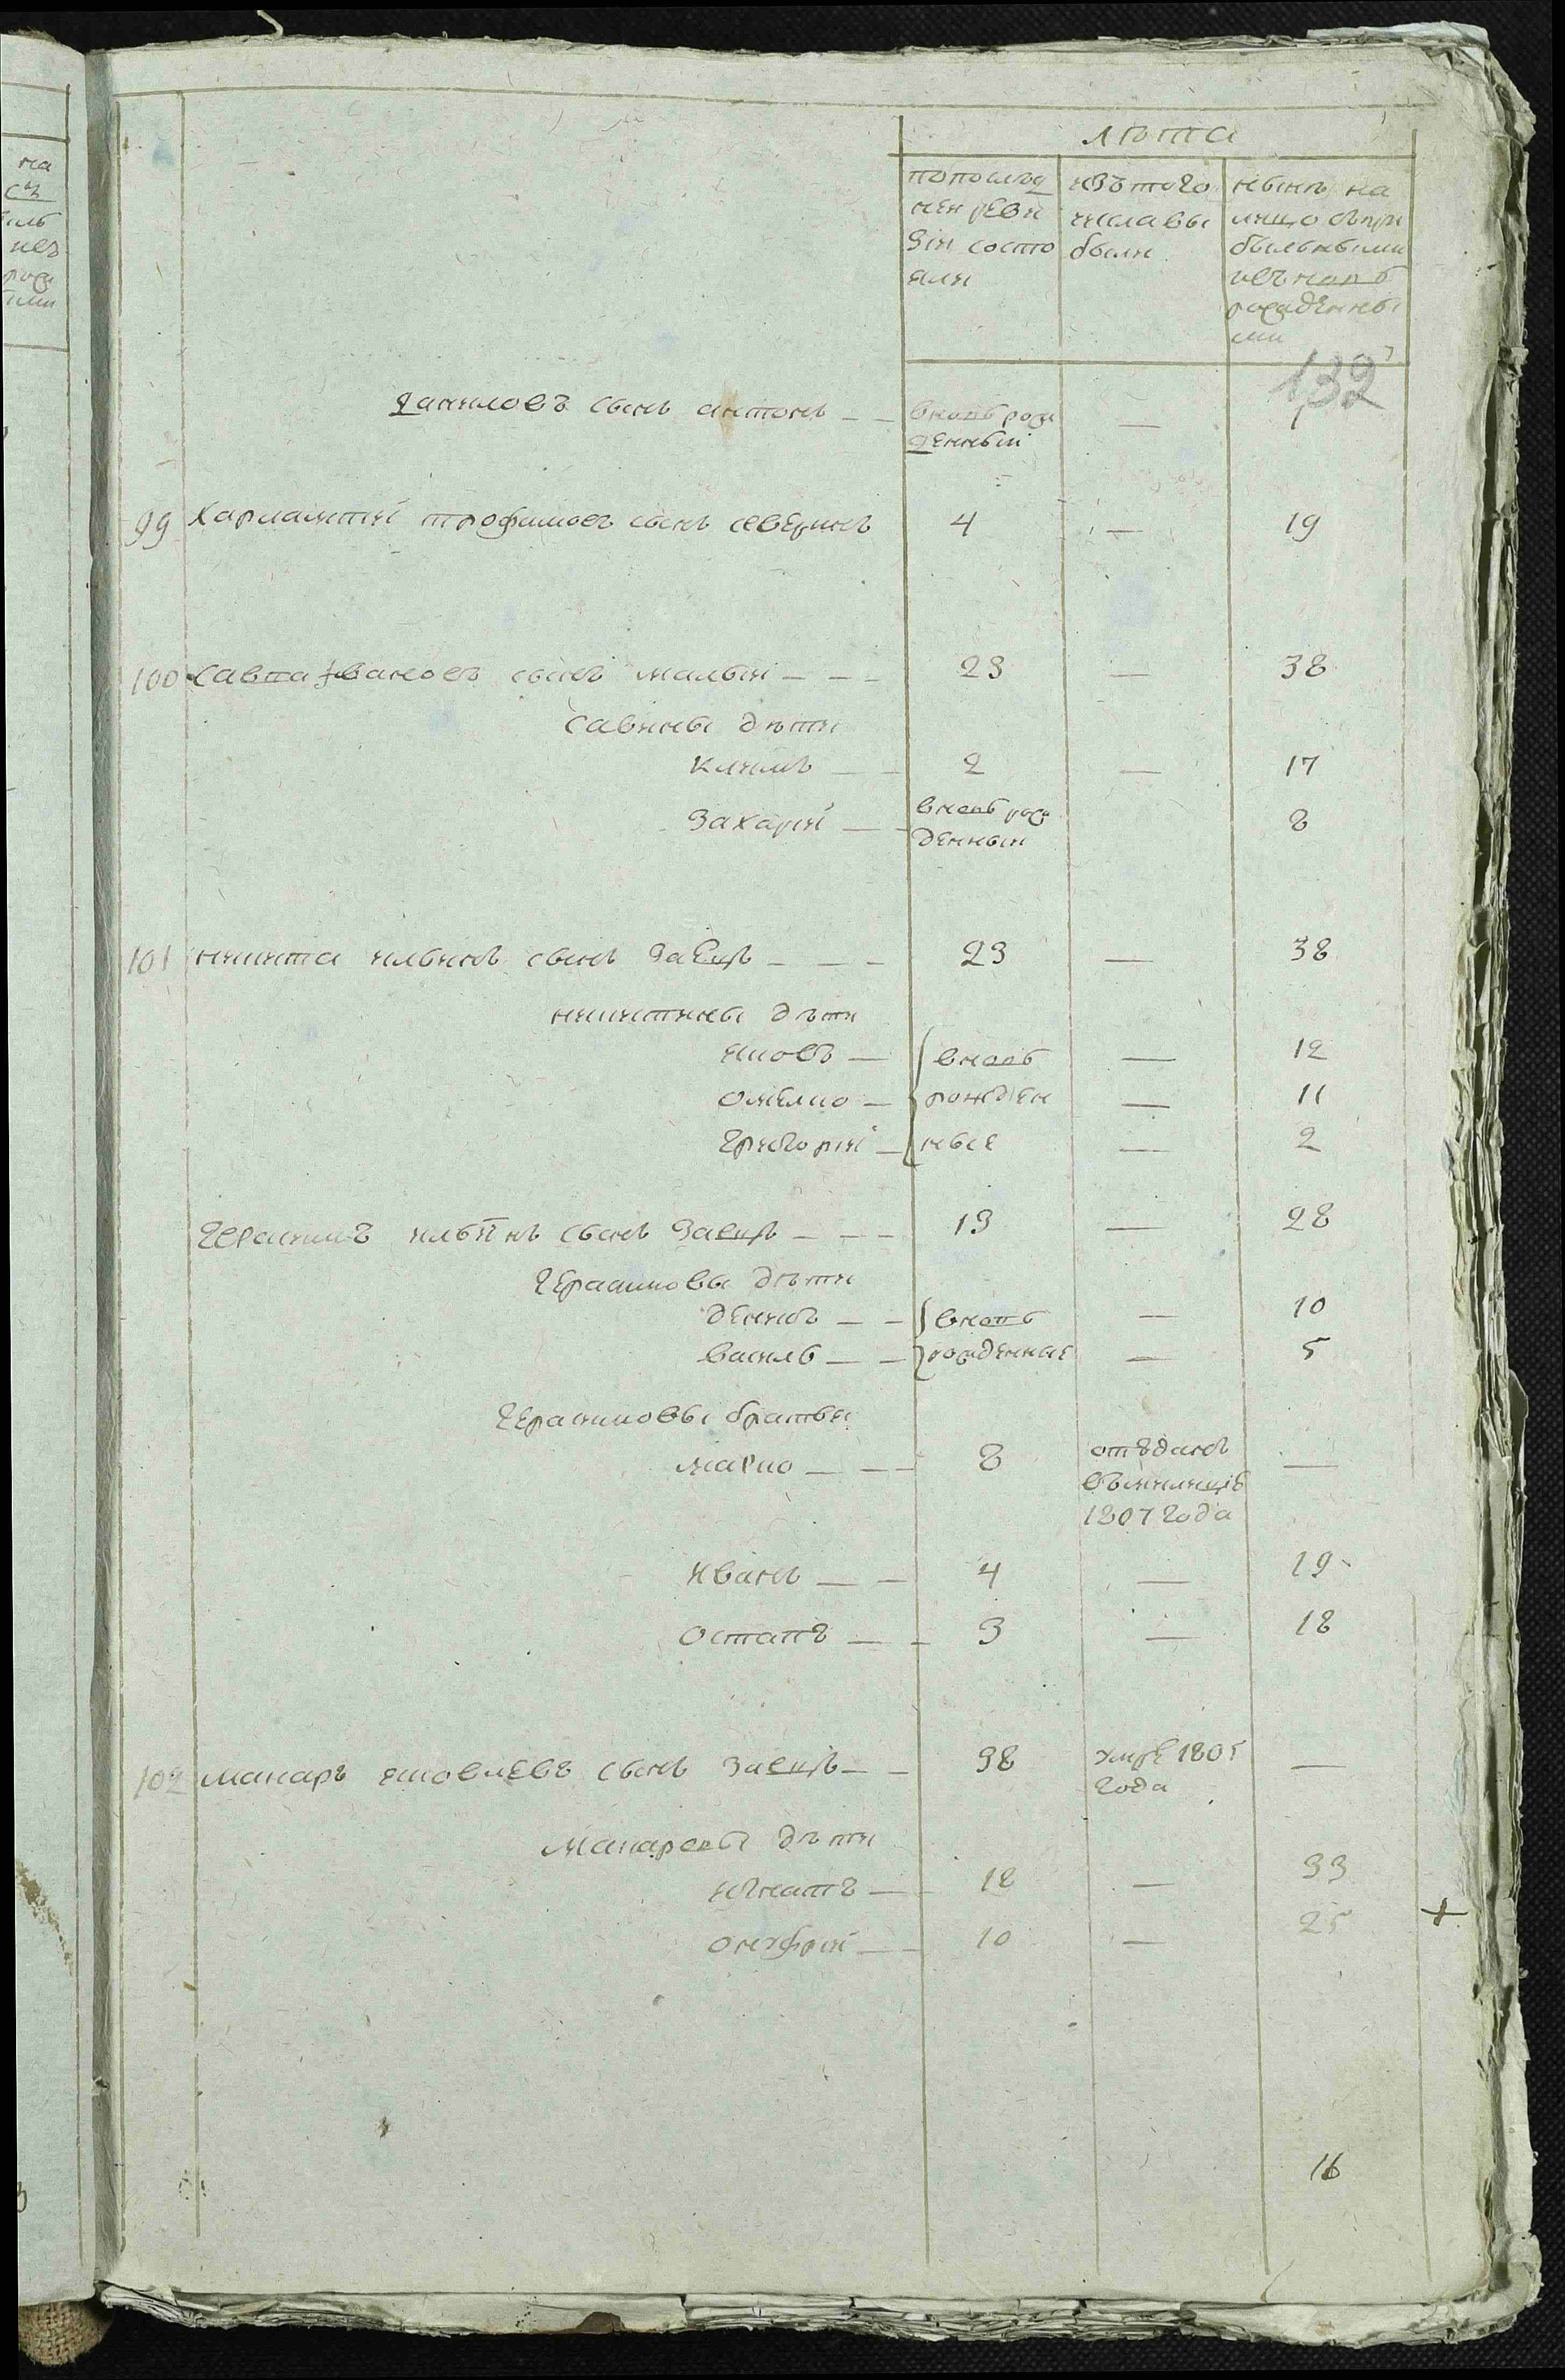 лѣта
попослѣд
ней реви
зіи состо
яли
изътого
числа вы
были
нынѣ на
лицо съпри
быльными
ивъновь
рожденны
ми
132
Даниловъ сынъ антонъ — — вновь рож
денный — 1
99 Харлампій трофимовъ сынъ северинъ 4 — 19
100 Савва Ивановъ сынъ малый — — — 23 — 38
Савины дѣти
Климъ — — 2 — 17
Захарій — — вновь рож
денныи 8
101 никита ильинъ сынъ Заецъ — — — 23 — 38
никитины дѣти
яковъ — вновь — 12
омелко — рожден — 11
Григорій — ные — 2
Герасимъ ильинъ сынъ Заецъ — — — 13 — 28
Герасимовы дѣти
денисъ — — вновь — 10
василь — — рожденные — 5
Герасимовы братья
марко — — — 8 отъданъ
въмилицію
1807 года —
Иванъ — — 4 — 19
Остапъ — — 3 — 18
102 макаръ яковлевъ сынъ Заецъ — — 38 умре 1805
года —
Макаровы дѣти
игнатъ — — 18 — 33
онуфрій — — 10 — 25
+
16